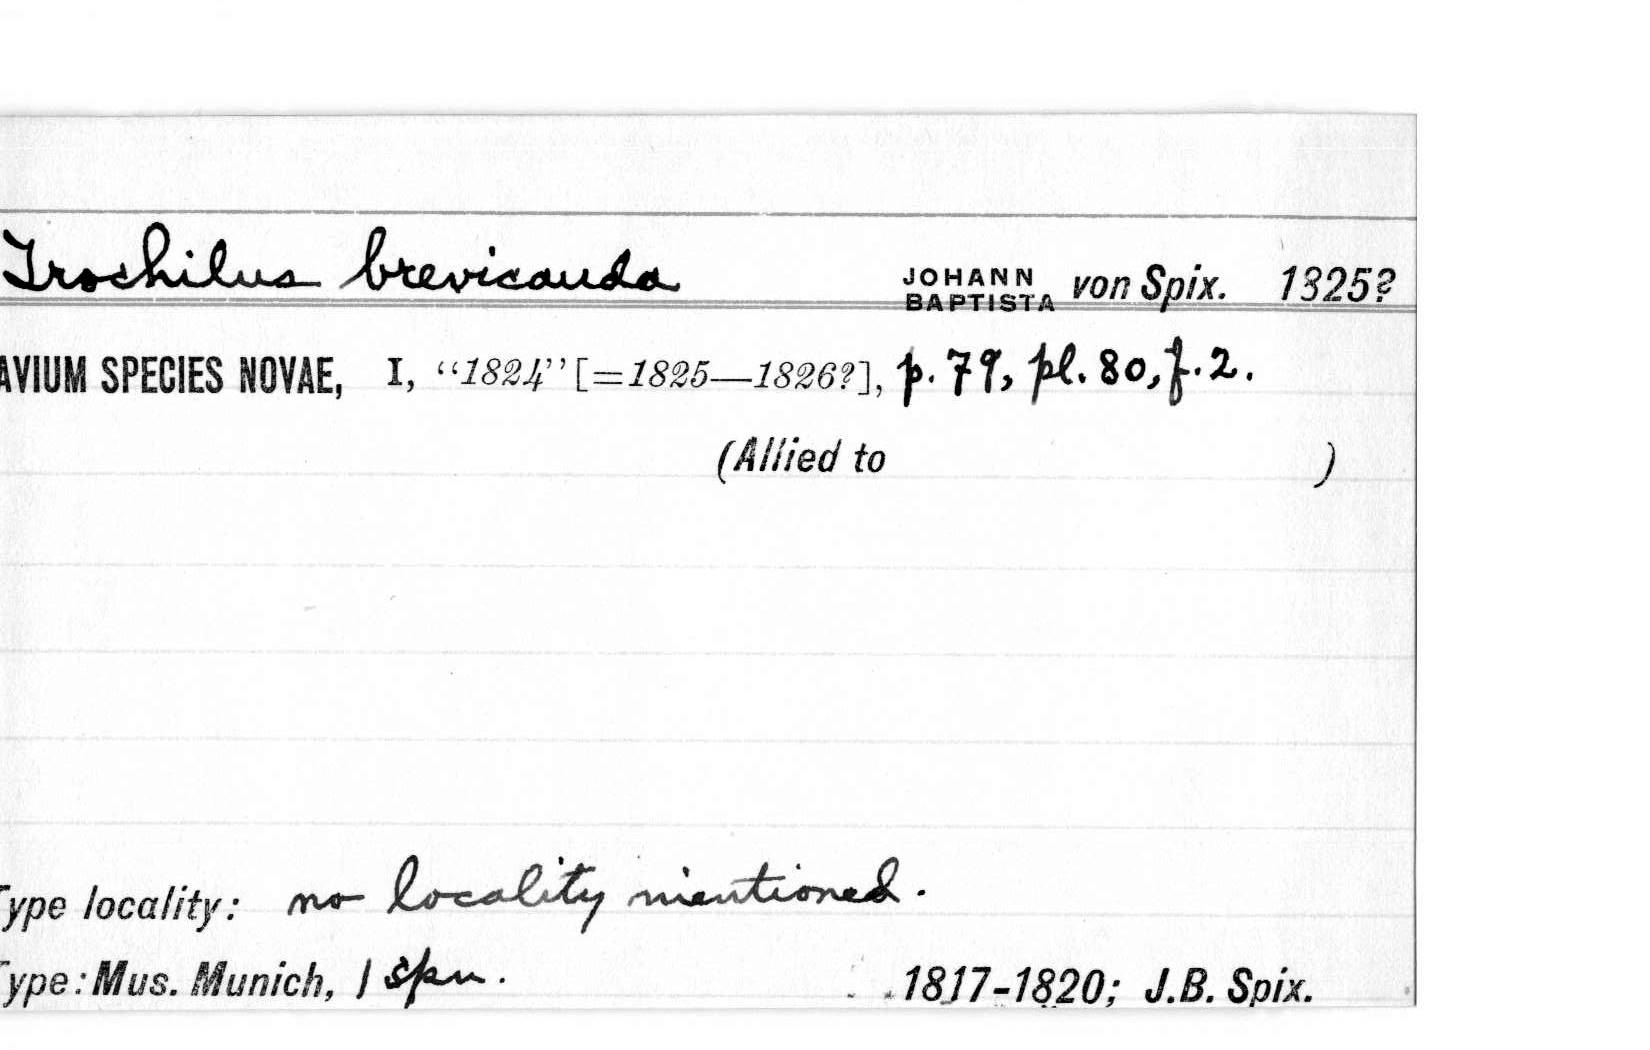 Trochilus brevicauda JOHANN BAPTISTA von Spix. 1825?
AVIUM SPECIES NOVAE, I, “1824” [=1825—1826?], p. 79, pl. 80, f. 2.
(Allied to )
Type locality: no locality mentioned.
Type: Mus. Munich, 1 spm. 1817-1820; J.B. Spix.